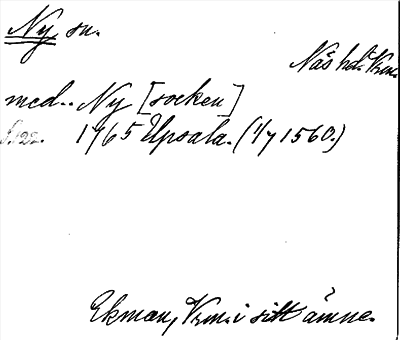 Ny, sn.
Näs hd. Vrm.
med. Ny [socken]
1765 Upsala. (1/7 1560.)
Ekman, Vrm. i sitt ämne.